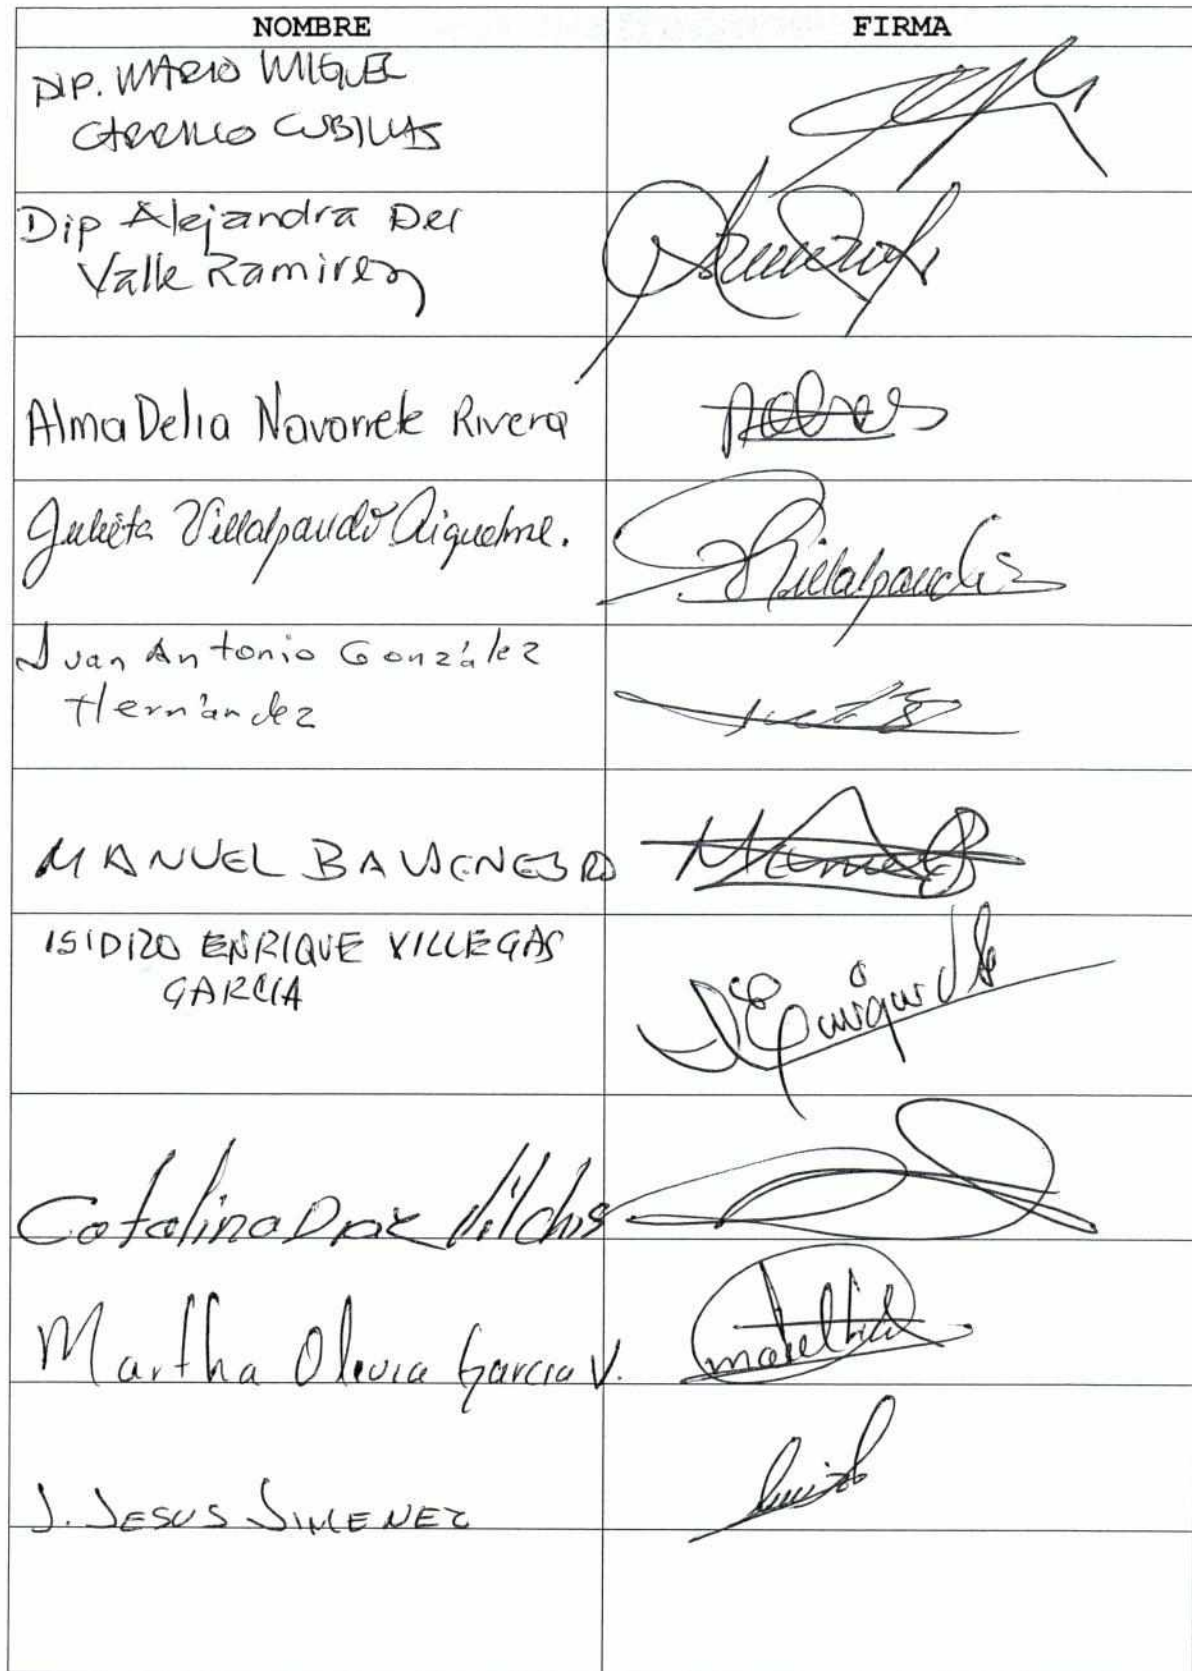 NOMBRE FIRMA
DIP. MARIO MIGUEL
CARRILLO CUBILLAS
Dip Alejandra Del
Valle Ramirez
Alma Delia Navarrete Rivera
Julieta Villalpando Riquelme.
Villalpando
Juan Antonio González
Hernández
MANUEL
ISIDRO ENRIQUE VILLEGAS
GARCIA
Enrique
Catalina Díaz Vilchis
Martha Olivia Garcia V.
J. JESUS JIMENEZ